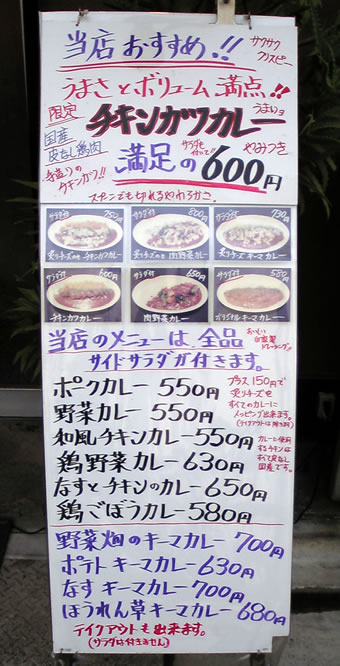 当店おすすめ!!
サクサク
クリスピー
うまさとボリューム満点!!
限定
チキンカツカレー
うまいョ
国産
皮なし鶏肉
手造りの
チキンカツ!!
満足の600円
サラダも
付いて!!
やみつき
スプーンでも切れるやわらかさ。
サラダ付 750円
炙りチーズのせ チキンカツカレー
サラダ付 800円
炙りチーズのせ 肉野菜カレー
サラダ付 730円
炙りチーズ キーマカレー
サラダ付 600円
チキンカツカレー
サラダ付 650円
肉野菜カレー
サラダ付 580円
オリジナルキーマカレー
当店のメニューは、全品
サイドサラダが付きます。
おいしい
自家製
ドレッシング!!
ポークカレー 550円
野菜カレー 550円
和風チキンカレー 550円
鶏野菜カレー 630円
なすとチキンのカレー 650円
鶏ごぼうカレー 580円
プラス150円で
炙りチーズを
すべてのカレーに
トッピング出来ます。
(テイクアウトは除きます)
カレーに使用
するチキンは
すべて皮なし
国産です。
野菜畑のキーマカレー 700円
ポテトキーマカレー 630円
なすキーマカレー 700円
ほうれん草キーマカレー 680円
テイクアウトも出来ます。
(サラダは付きません)